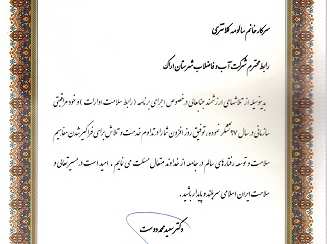 سرکار خانم سالومه کلانتری
رابط محترم شرکت آب و فاضلاب شهرستان اراک
بدینوسیله از تلاشهای ارزشمند جنابعالی در خصوص اجرای برنامه (رابط سلامت ادارات) و خود مراقبتی
سازمانی در سال ۹۷ تشکر نموده ، توفیق روز افزون شما را در تداوم خدمت و تلاش برای فراگیر شدن مفاهیم
سلامت و توسعه رفتارهای سالم در جامعه از خداوند متعال مسئلت می نمایم . امید است در مسیر تعالی و
سلامت ایران اسلامی سربلند و پایدار باشید.
دکتر سعید محمددوست